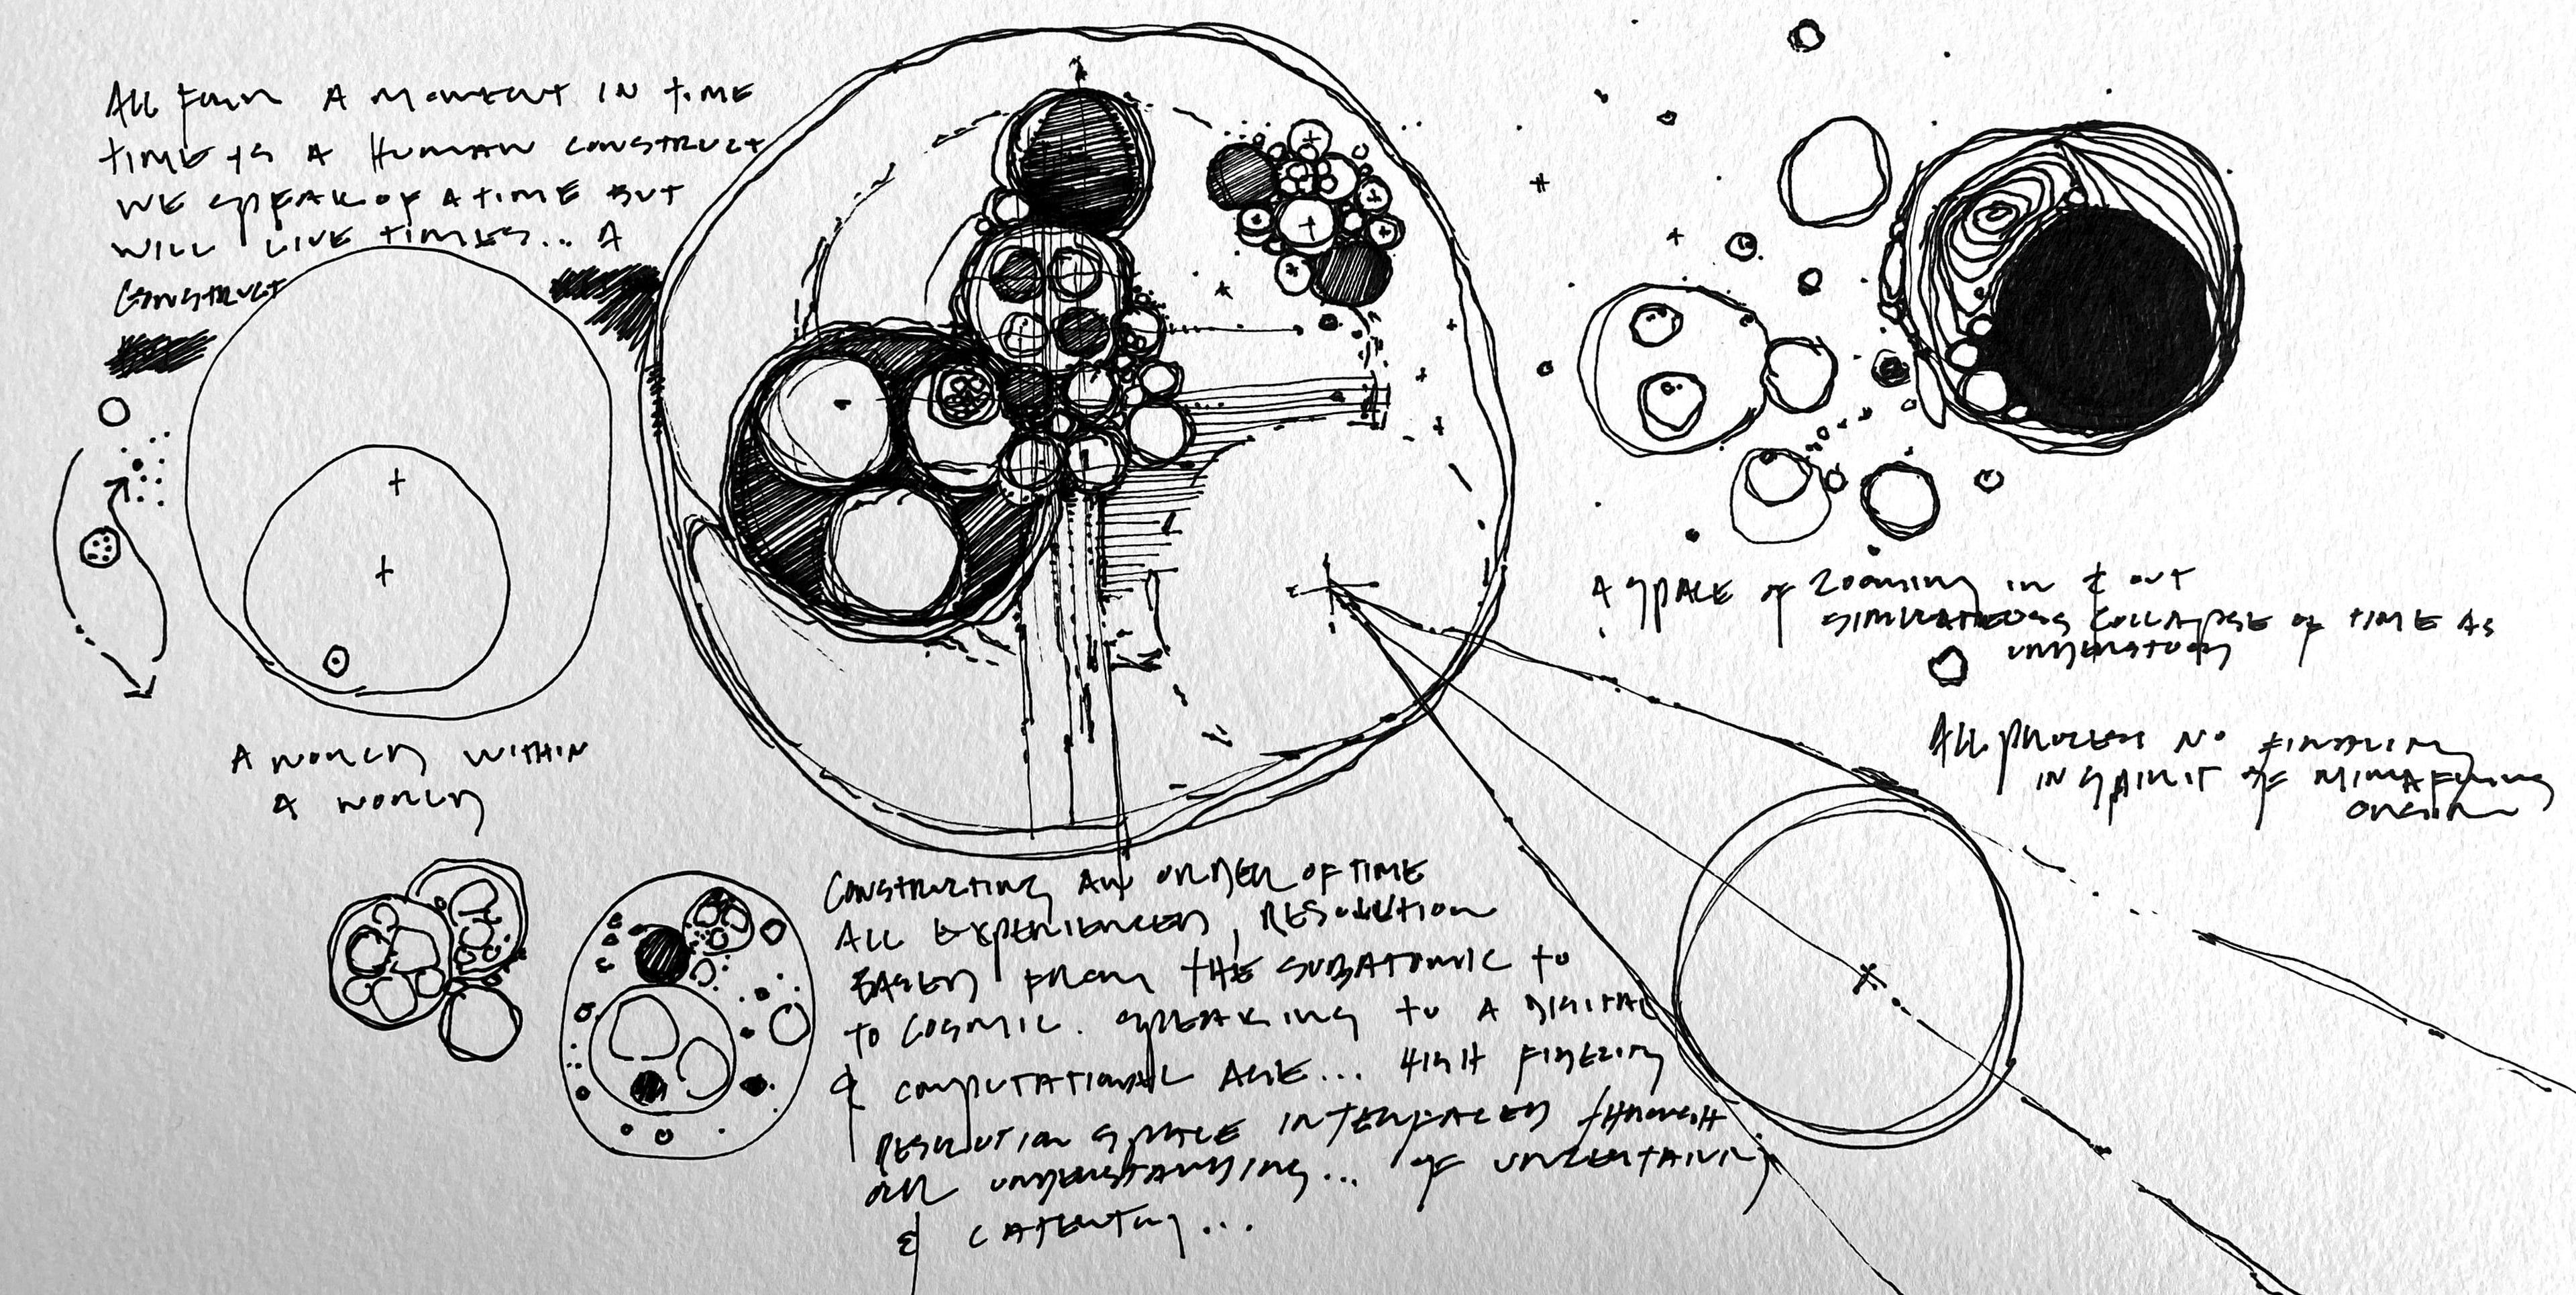 ALL FROM A MOMENT IN TIME
TIME IS A HUMAN CONSTRUCT
WE SPEAK OF A TIME BUT
WILL LIVE TIMES... A
CONSTRUCT
A WORLD WITHIN
A WORLD
A SPACE OF ZOOMING IN & OUT
SIMULTANEOUS COLLAPSE OF TIME AS
UNDERSTOOD
ALL PROCESS NO FINALITY
IN SPIRIT OF
CONSTRUCTING AN ORDER OF TIME
ALL EXPERIENCED, RESOLUTION
BASED FROM THE SUBATOMIC TO
TO COSMIC. SPEAKING TO A DIGITAL
& COMPUTATIONAL AGE... HIGH FIDELITY
RESOLUTION SPACE INTERFACED THROUGH
OUR UNDERSTANDING... OF UNCERTAINTY
&